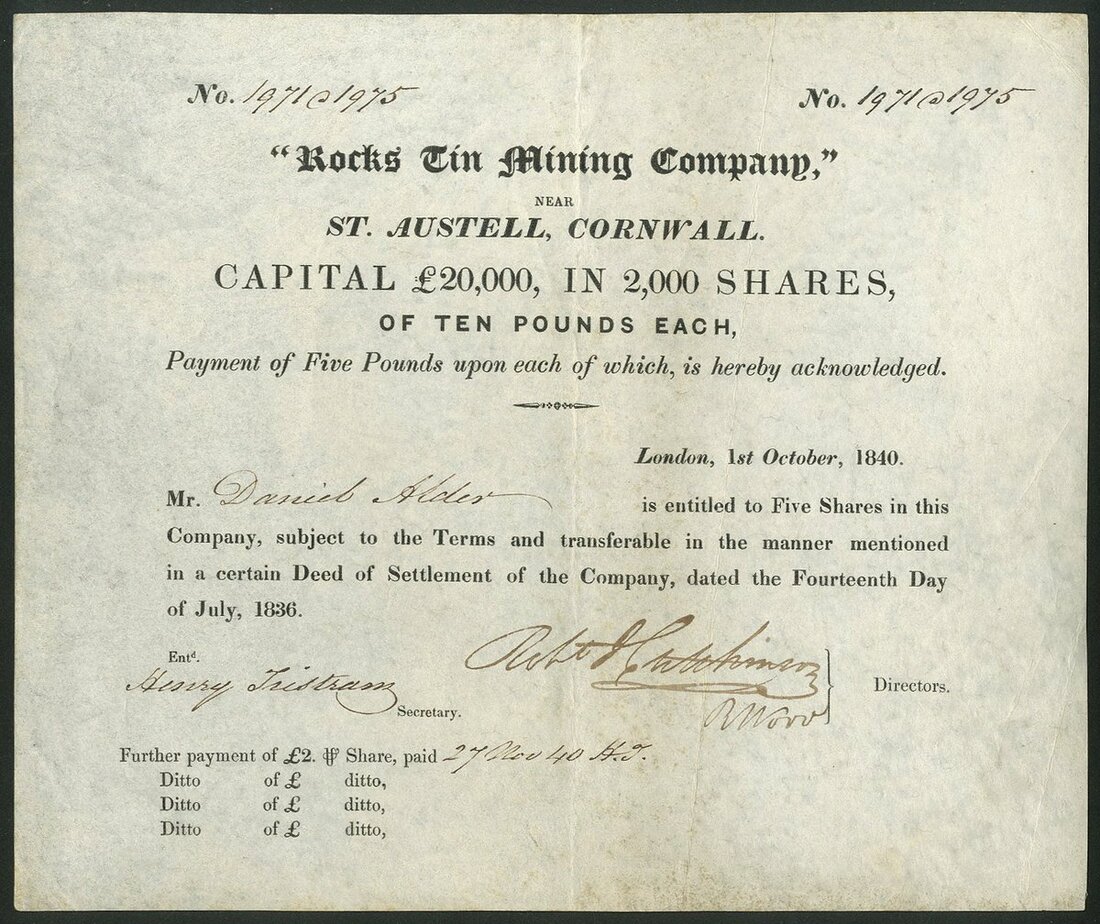 No. 1971 @ 1975 No. 1971 @ 1975
"Rocks Tin Mining Company,"
NEAR
ST. AUSTELL, CORNWALL.
CAPITAL £20,000, IN 2,000 SHARES,
OF TEN POUNDS EACH,
Payment of Five Pounds upon each of which, is hereby acknowledged.
London, 1st October, 1840.
Mr. Daniel Alder is entitled to Five Shares in this
Company, subject to the Terms and transferable in the manner mentioned
in a certain Deed of Settlement of the Company, dated the Fourteenth Day
of July, 1836.
Entd.
Henry Tristram Secretary.
Robt Hutchinson
R Wood
Directors.
Further payment of £2. ⅌ Share, paid 27 Nov 40 H.T.
Ditto of £ ditto,
Ditto of £ ditto,
Ditto of £ ditto,